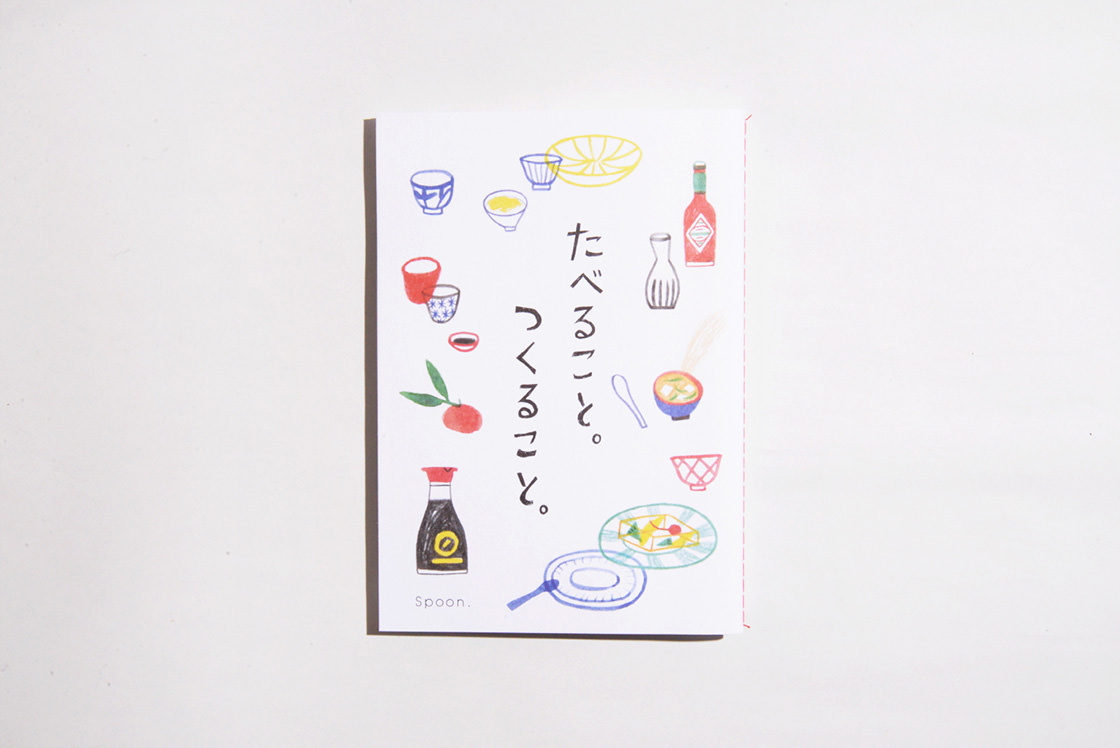 たべること。
つくること。
Spoon.